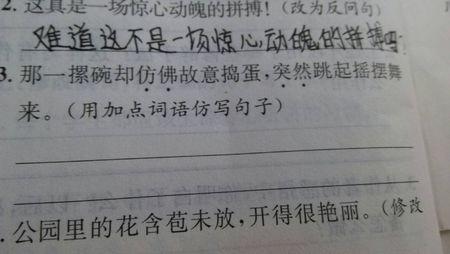 2. 这真是一场惊心动魄的拼搏！（改为反问句）
难道这不是一场惊心动魄的拼搏吗
3. 那一摞碗却仿佛故意捣蛋，突然跳起摇摆舞
来。（用加点词语仿写句子）
. 公园里的花含苞未放，开得很艳丽。（修改